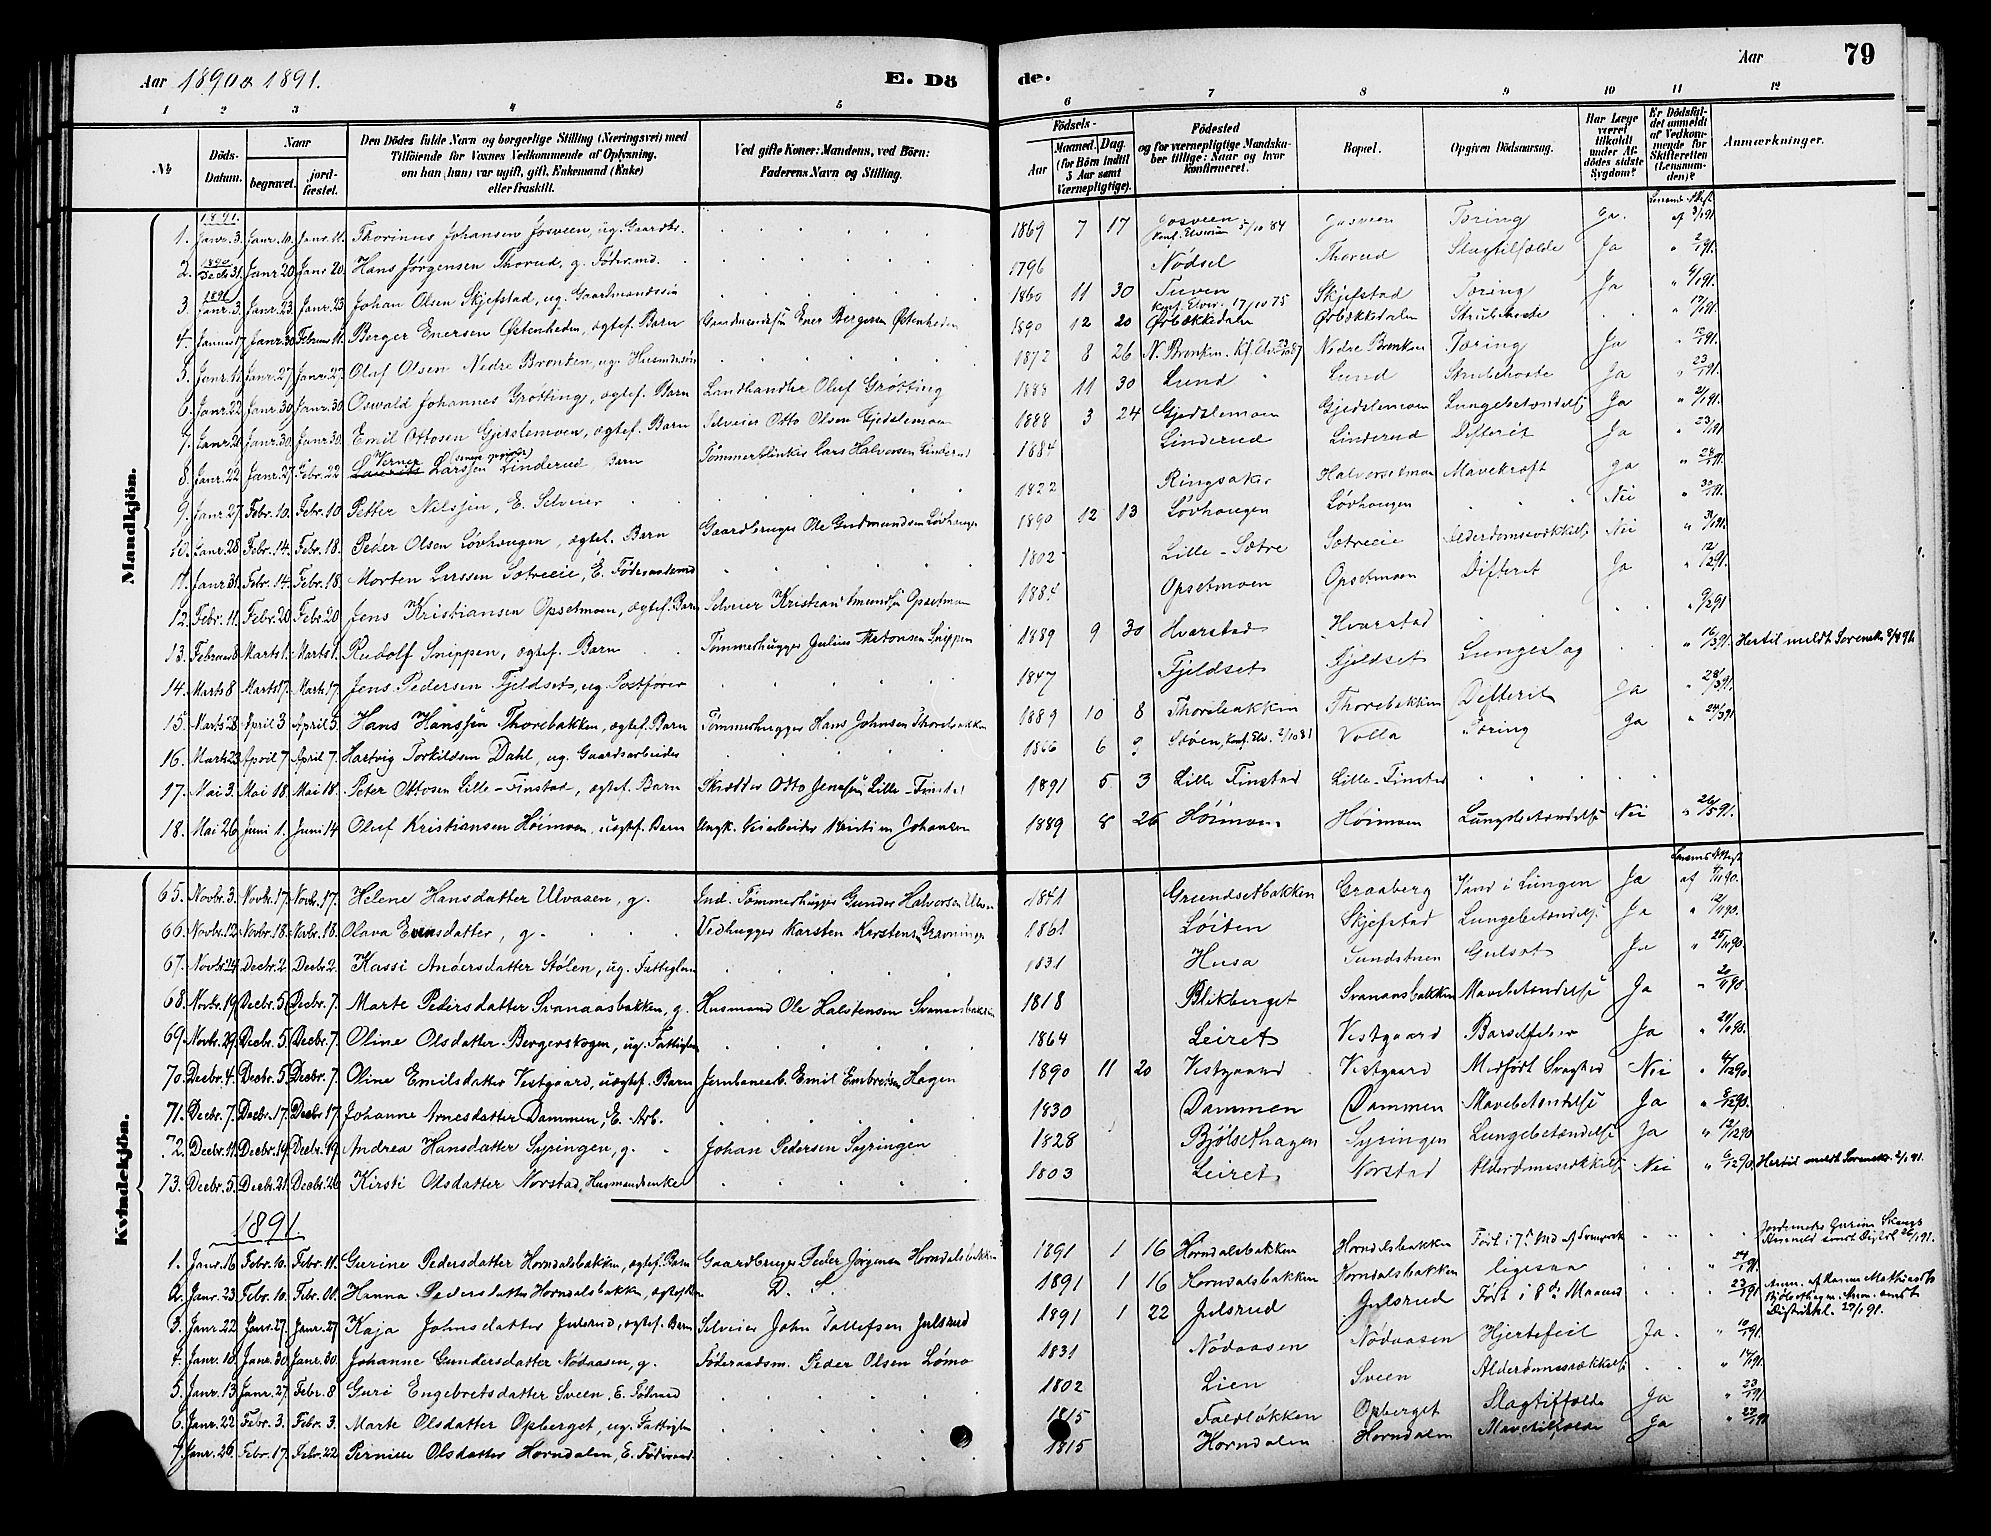 Aar 1890 & 1891. E. Dö de. Aar 79
1 2 3 4 5 6 7 8 9 10 11 12
No Döds-Datum. Naar begravet. jordfæstet. Den Dödes fulde Navn og borgerlige Stilling (Næringsvei) med Tilföiende for Voxnes Vedkommende af Oplysning, om han (hun) var ugift, gift, Enkemand (Enke) eller fraskilt. Ved gifte Koner: Mandens, ved Börn: Faderens Navn og Stilling. Födsels- Aar Maaned. Dag. (for Börn indtil 5 Aar samt Værnepligtige). Födested og for værnepligtige Mandskaber tillige: Naar og hvor konfirmeret. Bopæl. Opgiven Dödsaarsag. Har Læge været tilkaldt under Afdödes sidste Sygdom? Er Dödsfaldet anmeldt af Vedkommende for Skifteretten (Lensmanden)? Anmærkninger.
Mandkjön.
1891.
1. Janr. 3. Janr. 10. Janr. 11. Thorinus Johansen Josveen, ug. Gaardbr. 1869 7 17 Josveen Konf. Elverum 5/10 84 Josveen Tæring Ja. af 3/1 91
2. 1890 Decbr 31. Janr 20 Janr 20. Hans Jörgensen Thorud, g. Föder.md. 1796 Nodsel Thorud Slagtilfælde Ja " 2/1 91.
3. 1891 Janr. 3. Janr. 23. Janr. 23 Johan Olsen Skjefstad, ug. Gaardmandssön 1860 11 30 Tuven Konf. Elver. 17/10 75 Skjefstad Tæring Ja " 4/1 91.
4. Januar 17. Janr. 30 Februar 11. Berger Enersen Östenheden, ægtef. Barn Gaardmandssön Ener Bergersen Östenheden 1890 12 20 Örbækkedalen Örbækkedalen Strubehoste " 17/1 91
5. Janr. 11. Janr. 27 Janr. 27. Oluf Olsen Nedre Bronken, ug. Husmdssön 1872 8 26 N. Bronken. Nedre Bronken Tæring Ja " 12/1 91.
6. Janr. 22. Janr. 30 Janr. 30. Oswald Johannes Grötting, ægtef. Barn Landhandler Oluf Grötting 1888 11 30 Lund Lund Strubehoste Ja " 23/1 91.
7. Janr. 20. Janr. 30. Janr. 30. Emil Ottosen Gjedslemoen, ægtef. Barn Selveier Otto Olsen Gjedslemoen 1888 3 24 Gjedslemoen Gjedslemoen Lungebetændelse Ja " 21/1 91.
8. Janr. 22 Janr. 27. Febr. 22. Verner Larssen Linderud, Barn Tömmerblinker Lars Halvorsen Linderud 1884 Linderud Linderud Difterit Ja " 23/1 91
9. Janr. 27 Febr. 10. Febr. 10 Petter Nilssen, E. Selveier 1822 Ringsaker Halvorsetmoen Mavekræft Ja " 28/1 91.
10. Janr. 28. Febr. 14. Febr. 18. Peder Olsen Lövhaugen, ægtef. Barn Gaardbruger Ole Gudmundsen Lövhaugen 1890 12 13 Lövhaugen Lövhaugen Nei " 30/1 91.
11. Janr. 31. Febr. 14 Febr. 18. Morten Larssen Sætreeie, E. Föderaadsmd 1802 Lille-Sætre Sætreeie Alderdomssvækkelse Nei " 31/1 91.
12. Febr. 11. Febr. 20 Febr. 20 Jens Kristiansen Opsetmoen, ægtef. Barn Selveier Kristian Opsetmoen 1884 Opsetmoen Opsetmoen Difterit Ja " 12/2 91.
13. Februar 8 Marts 1. Marts 1. Rudolf Snippen, ægtef. Barn Tömmerhugger Julius Snippen 1889 9 30 Hvarstad Hvarstad " 9/2 91
14. Marts 8 Marts 17. Marts 17. Jens Pedersen Fjeldset, ug. Postförer 1847 Fjeldset Fjeldset Lungeslag " 16/3 91. Hertil meldt Sorensk.
15. Marts 28 April 3 April 5. Hans Hanssen Thorebakken, ægtef. Barn Tömmerhugger Hans Johnsen Thorebakken 1889 10 8 Thorebakken Thorebakken Difterit Ja " 28/3 91
16. Marts 23. April 7 April 7. Hartvig Torkildsen Dahl, ug. Gaardsarbeider 1866 6 9 Støen, Konf. Elv. 2/10 81 Volla Tæring Ja " 24/3 91
17. Mai 3. Mai 18. Mai 18. Peter Ottosen Lille-Finstad, ægtef. Barn Skrædder Otto Jenssen Lille-Finstad 1891 5 3 Lille Finstad Lille-Finstad
18. Mai 26 Juni 1. Juni 14 Oluf Kristiansen Höimoen, uægtef. Barn Ungk. Veiarbeider Kristian Johansen 1889 8 26 Höimoen Höimoen Lungebetændelse Nei " 26/5 91.
Kvindekjön.
65. Novbr. 3. Novbr. 17. Novbr. 17. Helene Hansdatter Ulvaaen, g. Ind. Tömmerhugger Gunder Halvorsen Ulvaaen 1841 Grundsetbakken Graaberg Vand i Lungen Ja af 4/11 90.
66. Novbr. 12 Novbr. 18. Novbr. 18. Olava Evensdatter, g. Vedhugger Karsten Karstensen 1861 Löiten Skjefstad Lungebetændelse Ja " 12/11 90.
67. Novbr. 24 Decbr. 2. Decbr. 2. Kassi Andersdatter Stölen, ug. Fattiglem 1831 Husa Sundstuen Gulsot Ja " 25/11 90
68. Novbr. 19 Decbr. 5. Decbr. 7. Marte Pedersdatter Svanaasbakken, g. Husmand Ole Halstensen Svanaasbakken 1818 Blikberget Svanaasbakken Mavebetændelse Ja " 20/11 90.
69. Novbr. 29 Decbr. 5. Decbr. 7. Oline Olsdatter Bergerskogen, ug. Fattiglem 1864 Leiret Vestgaard Barselfeber Ja " 29/11 90.
70. Decbr. 4. Decbr. 5. Decbr. 7. Oline Emilsdatter Vestgaard, uægtef. Barn Jernbanearb. Emil Embretsen Hagen 1890 11 20 Vestgaard Vestgaard Medfödt Svaghed Nei " 4/12 90.
71. Decbr. 7. Decbr. 17. Decbr. 17. Johanne Arnesdatter Dammen, E. Arb. 1830 Dammen Dammen Mavebetændelse Ja " 8/12 90.
72. Decbr. 11. Decbr. 19 Decbr. 19 Andrea Hansdatter Syringen, g. Johan Pedersen Syringen 1828 Bjölsethagen Syringen Lungebetændelse Ja " 12/12 90
73. Decbr. 5. Decbr. 21. Decbr. 26 Kirsti Olsdatter Norstad, Husmandsenke 1803 Leiret Norstad Alderdomssvækkelse Nei " 6/12 90. Hertil meldt Sorenskr. 2/1 91.
1891.
1. Janr. 16 Febr. 10. Febr. 11. Gurine Pedersdatter Horndalsbakken, ægtef. Barn Gaardbruger Peder Jörgensen Horndalsbakken 1891 1 16 Horndalsbakken Horndalsbakken Födt i 7de Md. af Svangersk. Jordemoder Gurine Skaugs
2. Janr. 23. Febr. 10. Febr. 11. Hanna Pedersdatter Horndalsbakken, ægtef. Barn D. S. 1891 1 16 Horndalsbakken Horndalsbakken ligesaa " 24/1 91.
3. Janr. 22 Janr. 27. Janr. 27 Kaja Johnsdatter Julsrud, ægtef. Barn Selveier John Tollefsen Julsrud 1891 1 22 Julsrud Julsrud Födt i 8de Maaned " 23/1 91 Anm. af Karen Mathiasds. Bjölsethagen. Anm. sendt Distriktsl. 27/1 91.
4. Janr. 10. Janr. 30. Janr. 30. Johanne Gundersdatter Nödaasen, g. Föderaadsm. Peder Olsen Lömo 1831 Nödaasen Nödaasen Hjertefeil Ja. " 10/1 91.
5. Janr. 13. Janr. 27. Febr. 8 Guri Engebretsdatter Sveen, E. Föderaad 1802 Lien Sveen Alderdomssvækkelse " 14/1 91.
6. Janr. 22 Febr. 3. Febr. 3. Marte Olsdatter Opberget, ug. Fattiglem 1815 Faldløkken Opberget Slagtilfælde Ja " 23/1 91
7. Janr. 26. Febr. 17. Febr. 22. Pernille Olsdatter Horndalen, E. Föderaad. 1815 Horndalen Horndalen Mavetilfælde Ja " 27/1 91